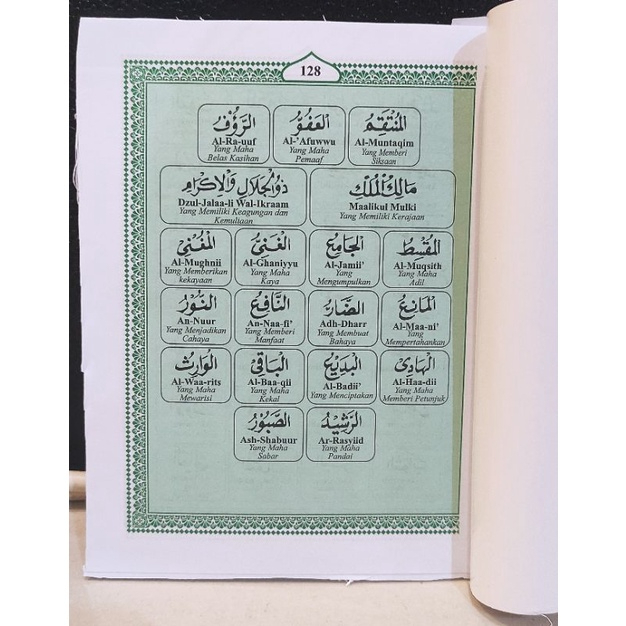 128
المُنْتَقِمُ
Al-Muntaqim
Yang Memberi
Siksaan
العَفُوُّ
Al-'Afuwwu
Yang Maha
Pemaaf
الرَّؤُفُ
Ar-Ra-uuf
Yang Maha
Belas Kasihan
مَالِكُ الْمُلْكِ
Maalikul Mulki
Yang Memiliki Kerajaan
ذُو الْجَلَالِ وَالْإِكْرَامِ
Dzul-Jalaa-li Wal-Ikraam
Yang Memiliki Keagungan dan
Kemuliaan
المُقْسِطُ
Al-Muqsith
Yang Maha
Adil
الجَامِعُ
Al-Jamii'
Yang
Mengumpulkan
الغَنِيُّ
Al-Ghaniyyu
Yang Maha
Kaya
المُغْنِيُ
Al-Mughnii
Yang Memberikan
kekayaan
المَانِعُ
Al-Maa-ni'
Yang
Mempertahankan
الضَّارُّ
Adh-Dharr
Yang Membuat
Bahaya
النَّافِعُ
An-Naa-fi'
Yang Memberi
Manfaat
النُّوْرُ
An-Nuur
Yang Menjadikan
Cahaya
الهَادِى
Al-Haa-dii
Yang Maha
Memberi Petunjuk
البَدِيْعُ
Al-Badii'
Yang Menciptakan
البَاقِى
Al-Baa-qii
Yang Maha
Kekal
الوَارِثُ
Al-Waa-rits
Yang Maha
Mewarisi
الرَّشِيْدُ
Ar-Rasyiid
Yang Maha
Pandai
الصَّبُوْرُ
Ash-Shabuur
Yang Maha
Sabar